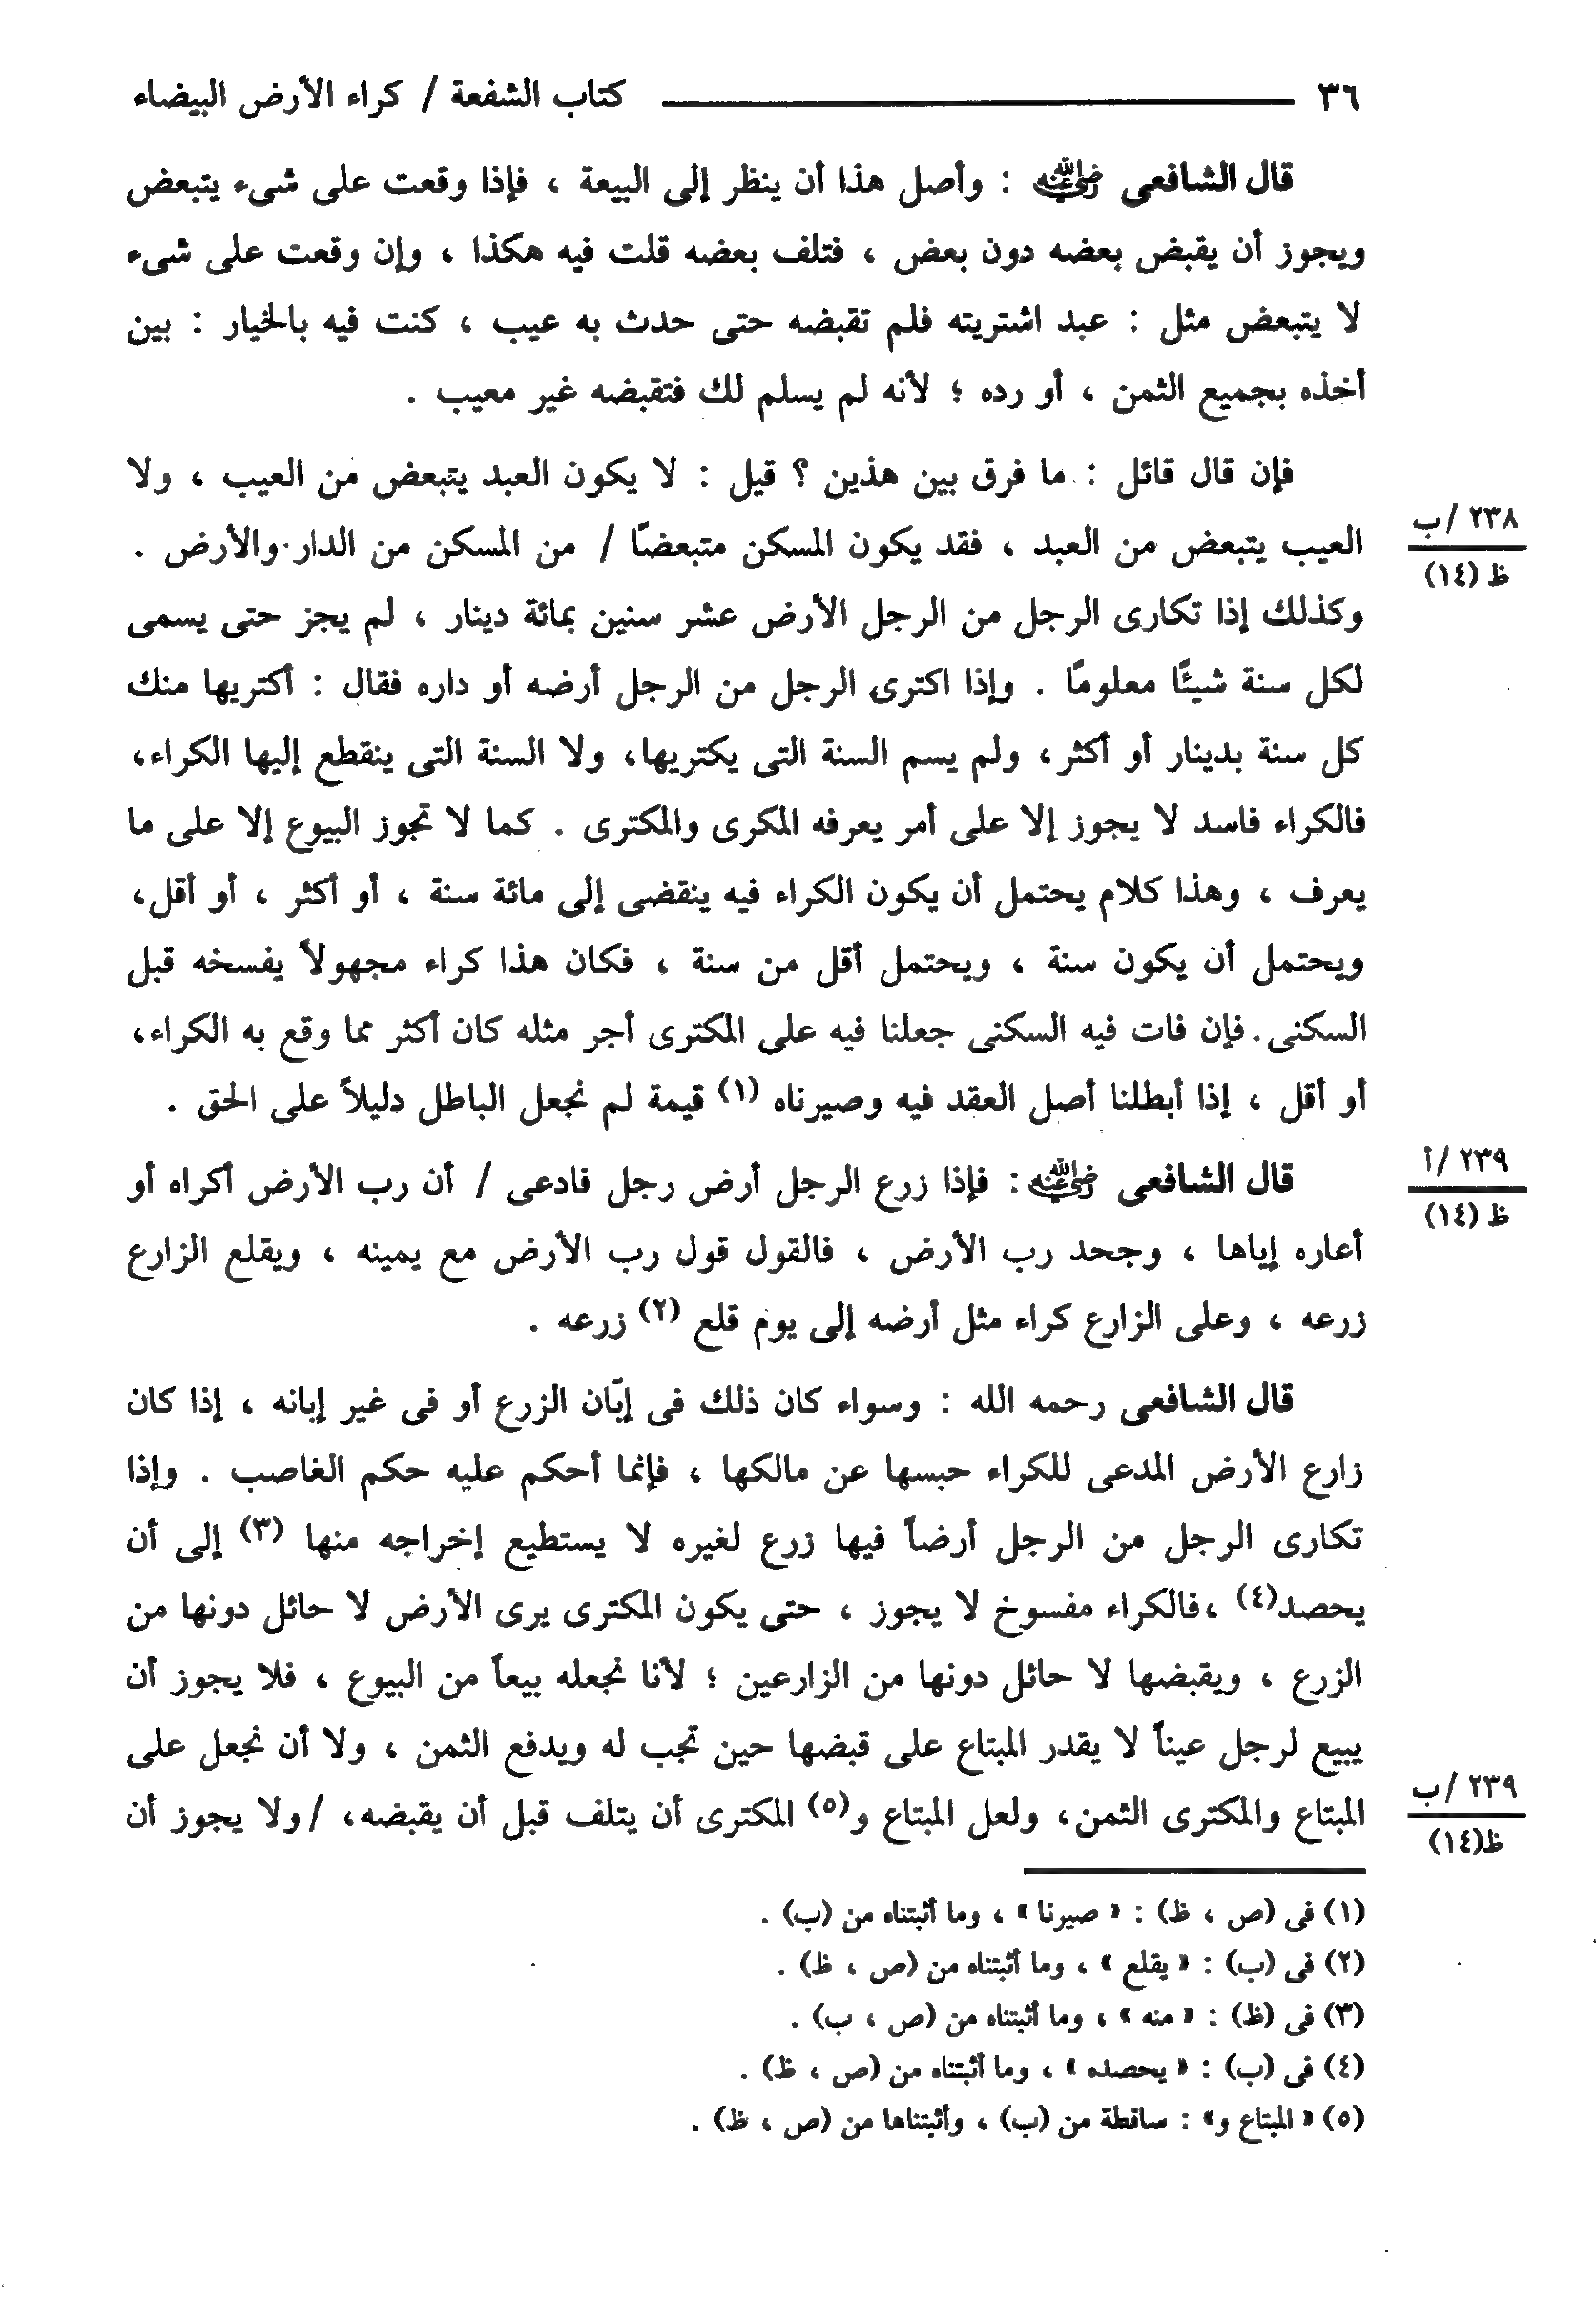 ٣٦ كتاب الشفعة / كراء الأرض البيضاء
قال الشافعى رضي الله عنه : وأصل هذا أن ينظر إلى البيعة ، فإذا وقعت على شىء يتبعض
ويجوز أن يقبض بعضه دون بعض ، فتلف بعضه قلت فيه هكذا ، وإن وقعت على شىء
لا يتبعض مثل : عبد اشتريته فلم تقبضه حتى حدث به عيب ، كنت فيه بالخيار : بين
أخذه بجميع الثمن ، أو رده ؛ لأنه لم يسلم لك فتقبضه غير معيب .
فإن قال قائل : ما فرق بين هذين ؟ قيل : لا يكون العبد يتبعض من العيب ، ولا
العيب يتبعض من العبد ، فقد يكون المسكن متبعضًا / من المسكن من الدار والأرض .
٢٣٨ /ب
ظ (١٤)
وكذلك إذا تكارى الرجل من الرجل الأرض عشر سنين بمائة دينار ، لم يجز حتى يسمى
لكل سنة شيئًا معلومًا . وإذا اكترى الرجل من الرجل أرضه أو داره فقال : أكتريها منك
كل سنة بدينار أو أكثر ، ولم يسم السنة التى يكتريها، ولا السنة التى ينقطع إليها الكراء،
فالكراء فاسد لا يجوز إلا على أمر يعرفه المكرى والمكترى . كما لا تجوز البيوع إلا على ما
يعرف ، وهذا كلام يحتمل أن يكون الكراء فيه ينقضى إلى مائة سنة ، أو أكثر ، أو أقل،
ويحتمل أن يكون سنة ، ويحتمل أقل من سنة ، فكان هذا كراء مجهولاً يفسخه قبل
السكنى . فإن فات فيه السكنى جعلنا فيه على المكترى أجر مثله كان أكثر مما وقع به الكراء،
أو أقل ، إذا أبطلنا أصل العقد فيه وصيرناه (١) قيمة لم نجعل الباطل دليلاً على الحق .
قال الشافعى رضي الله عنه : فإذا زرع الرجل أرض رجل فادعى / أن رب الأرض أكراه أو
٢٣٩ /أ
ظ (١٤)
أعاره إياها ، وجحد رب الأرض ، فالقول قول رب الأرض مع يمينه ، ويقلع الزارع
زرعه ، وعلى الزارع كراء مثل أرضه إلى يوم قلع (٢) زرعه .
قال الشافعى رحمه الله : وسواء كان ذلك فى إبّان الزرع أو فى غير إبانه ، إذا كان
زارع الأرض المدعى للكراء حبسها عن مالكها ، فإنما أحكم عليه حكم الغاصب . وإذا
تكارى الرجل من الرجل أرضاً فيها زرع لغيره لا يستطيع إخراجه منها (٣) إلى أن
يحصد(٤) ،فالكراء مفسوخ لا يجوز ، حتى يكون المكترى يرى الأرض لا حائل دونها من
الزرع ، ويقبضها لا حائل دونها من الزارعين ؛ لأنا نجعله بيعاً من البيوع ، فلا يجوز أن
يبيع لرجل عيناً لا يقدر المبتاع على قبضها حين تجب له ويدفع الثمن ، ولا أن نجعل على
المبتاع والمكترى الثمن، ولعل المبتاع و(٥) المكترى أن يتلف قبل أن يقبضه، /ولا يجوز أن
٢٣٩ /ب
ظ(١٤)
(١) فى (ص ، ظ) : « صيرنا » ، وما أثبتناه من (ب) .
(٢) فى (ب) : « يقلع » ، وما أثبتناه من (ص ، ظ) .
(٣) فى (ظ) : « منه » ، وما أثبتناه من (ص ، ب) .
(٤) فى (ب) : « يحصده » ، وما أثبتناه من (ص ، ظ) .
(٥) « المبتاع و» : ساقطة من (ب) ، وأثبتناها من (ص ، ظ) .